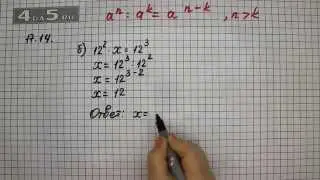 4DA5.RU
aⁿ : aᵏ = aⁿ⁻ᵏ, n>k
П.14.
б) 12² · x = 12³
x = 12³ : 12²
x = 12³⁻²
x = 12
Ответ: x =